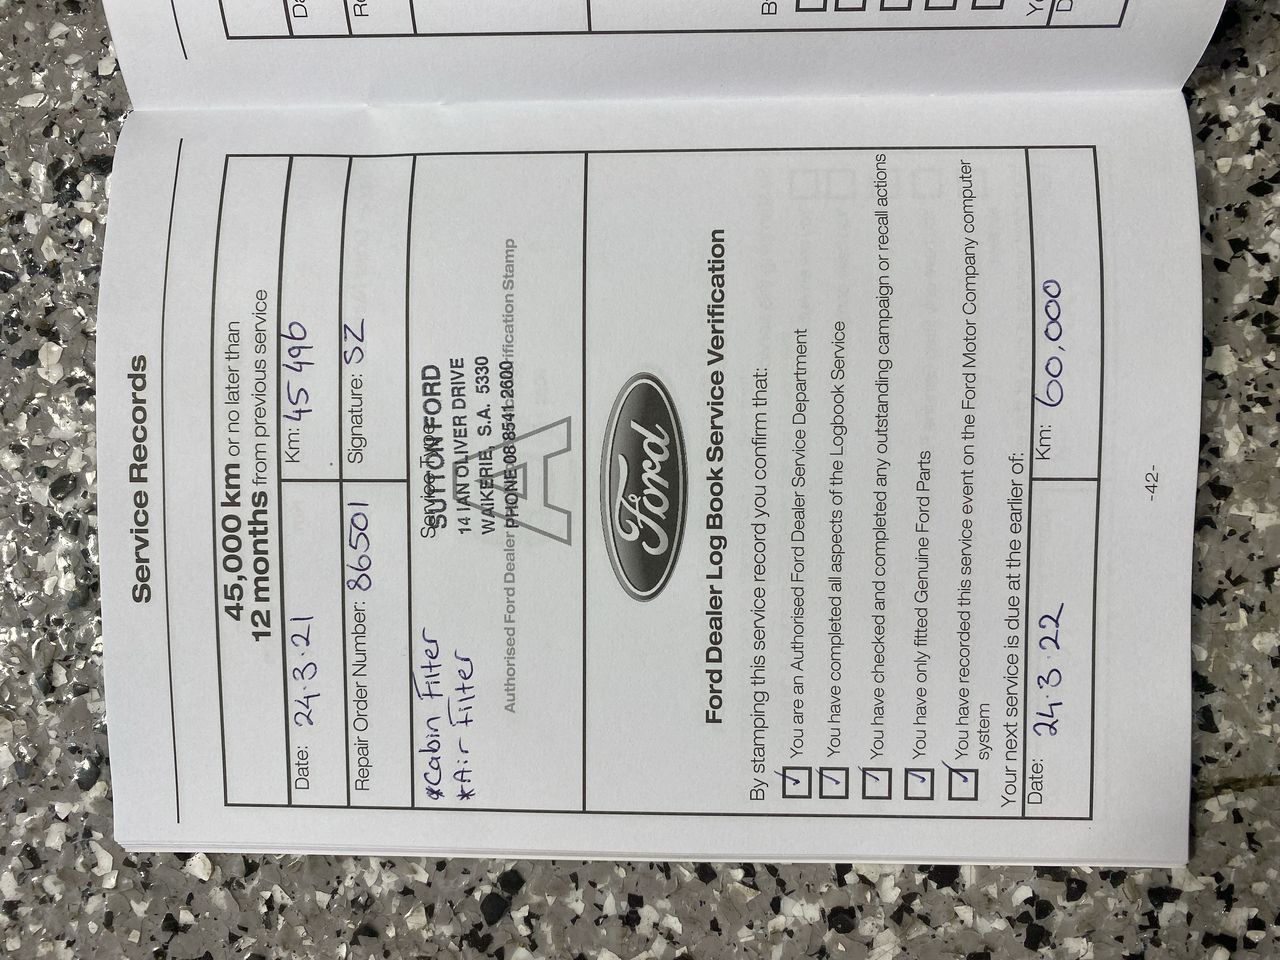 Service Records
45,000 km or no later than
12 months from previous service
Date: 24.3.21 Km: 45 496
Repair Order Number: 86501 Signature: SZ
*Cabin Filter
*Air Filter
SUTTON FORD
14 IAN OLIVER DRIVE
WAIKERIE, S.A. 5330
PHONE 08 8541 2600
Authorised Ford Dealer Verification Stamp
Ford
Ford Dealer Log Book Service Verification
By stamping this service record you confirm that:
You are an Authorised Ford Dealer Service Department
You have completed all aspects of the Logbook Service
You have checked and completed any outstanding campaign or recall actions
You have only fitted Genuine Ford Parts
You have recorded this service event on the Ford Motor Company computer
system
Your next service is due at the earlier of:
Date: 24.3.22 Km: 60,000
-42-